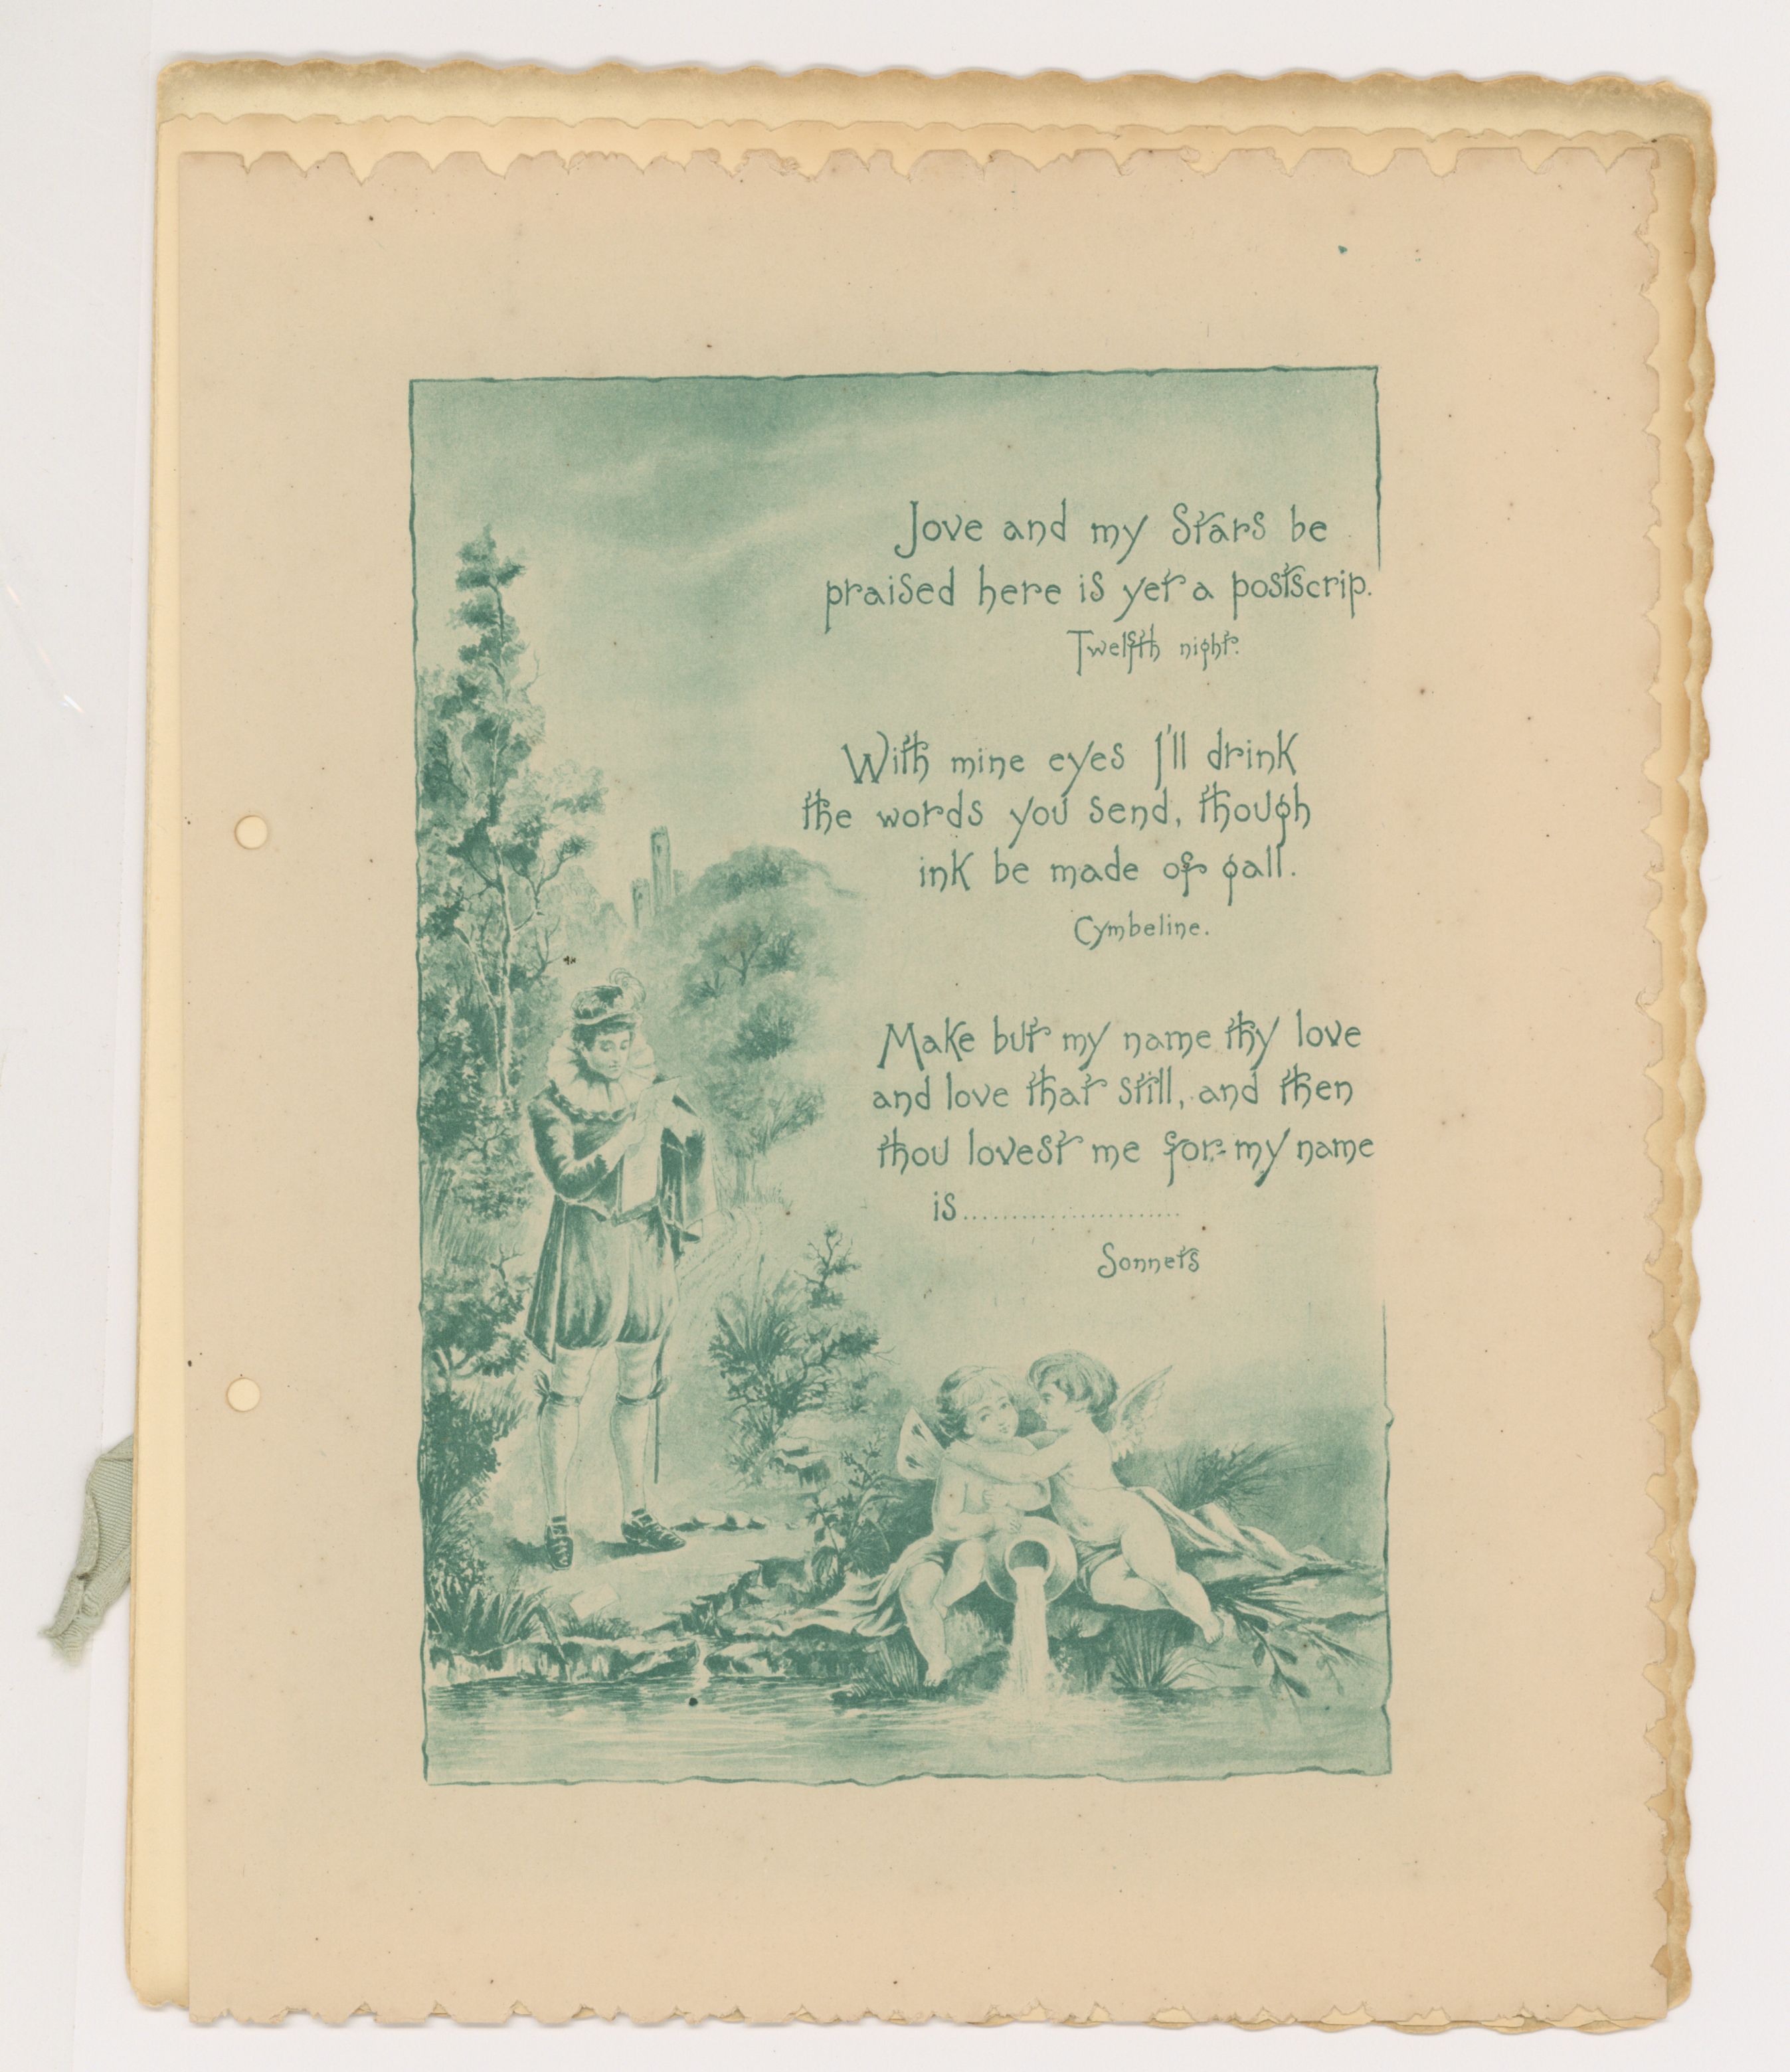 Jove and my Stars be
praised here is yet a postscrip.
Twelfth night.
With mine eyes I'll drink
the words you send, though
ink be made of gall.
Cymbeline.
Make but my name thy love
and love that still, and then
thou lovest me for my name
is........................
Sonnets